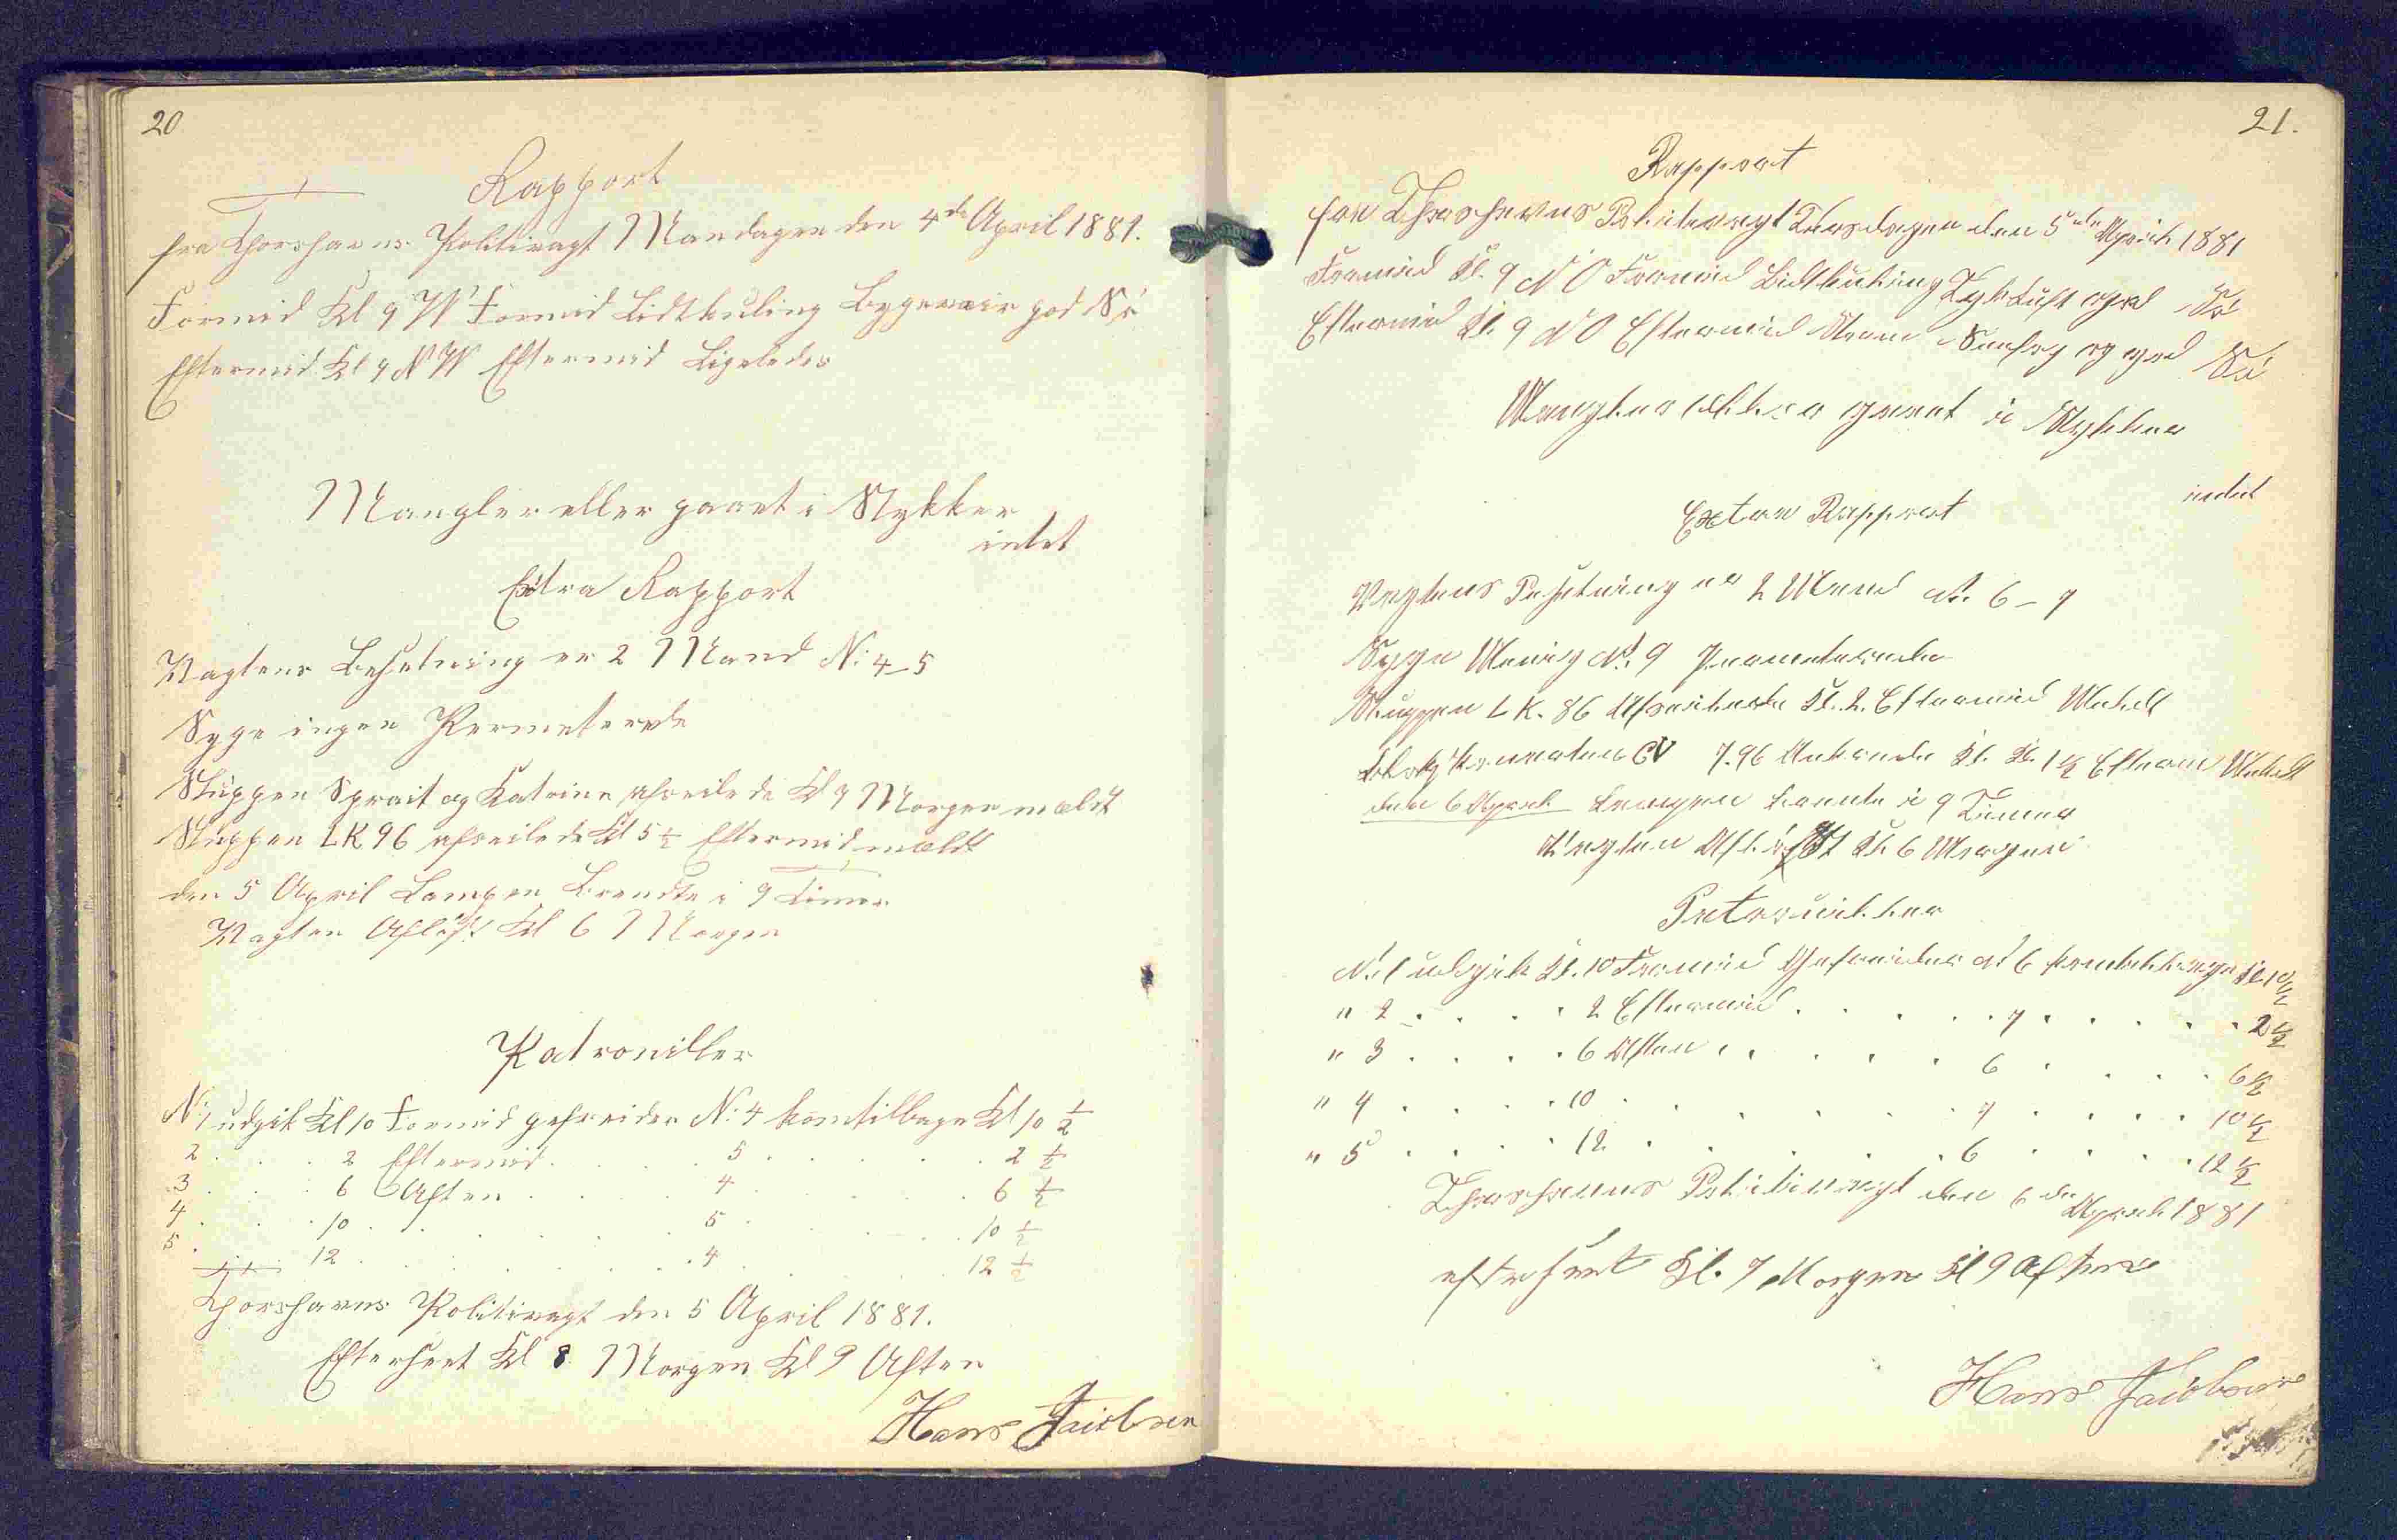 20
Rapport
fra Thorshavns Politivagt Mandagen den 4de April 1881.
Formid Kl 9 W Formid Lidtkuling Bygeveir god Sø
Eftermid Kl 9 NW Eftermid Ligeledes
Mangler eller gaaet i Stykker
intet
Extra Rapport
Vagtens Besetning er 2 Mand N: 4-5
Syge ingen Permeterede
Sluppen Sprait og Katrine afseilede Kl 9 Morgen meldt
Sluppen LK 96 afseilede Kl 5 ½ Eftermid meldt
den 5 April Lampen Brendte i 9 Timer
Vagten Afløst Kl 6 Morgen
Patroniller
N: 1 udgik Kl 10 Formid gefreider N: 4 kom tilbage Kl 10 ½
2 . . . 2 Eftermid . . . . 5 . . . . . 2 ½
3 . . . 6 Aften . . . . 4 . . . . . 6 ½
4 . . . 10 . . . . . 5 . . . . . 10 ½
5 . . . 12 . . . . . 4 . . . . . 12 ½
Thorshavns Politivagt den 5 April 1881.
Efterseet Kl 8 Morgen Kl 9 Aften
Hans Jacobsen
21.
Rapport
fra Thorshavns Politivagt Tirsdagen den 5te April 1881
Formid Kl. 9 NO Formid Lidtkuling Tyk Luft god Sø
Eftermid Kl. 9 NO Eftermid og god Sø
Mangler eller gaaet i Stykker
intet
Extra Rapport
Vagtens Besetning er 2 Mand N. 6-7
Syge Menig N. 9 Permeterede
Sluppen LK. 86 Afseilede Kl. 2. Eftermid Meldt
CV 7.96 Ankrede Kl. Kl. 1½ Efterm Meldt
den 6 April Lampen brendte i 9 Timer
Vagten Afløst Kl. 6 Morgen
Patroniller
N. 1 udgik Kl. 10 Formid Gefreider N. 6 kom tilbage Kl. 10½
" 2 . . . . 2 Eftermid . . . . . 7 . . . . . 2½
" 3 . . . . 6 Aften . . . . . 6 . . . . 6½
" 4 . . . . 10 . . . . . . 7 . . . . 10½
" 5 . . . . 12 . . . . . . 6 . . . . 12½
Thorshavns Politivagt den 6de April 1881
efterseet Kl. 7 Morgen Kl 9 Aften
Hans Jacobsen